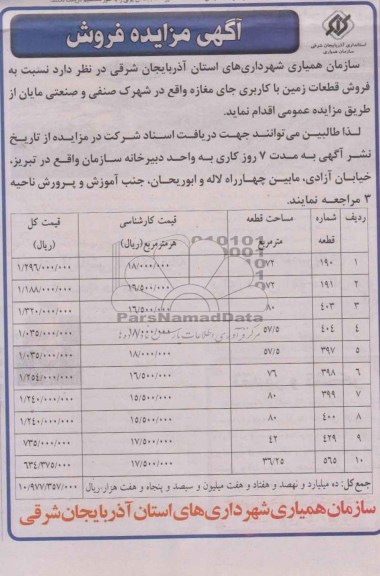 آگهی مزایده فروش
استانداری آذربایجان شرقی
سازمان همیاری
سازمان همیاری شهرداری‌های استان آذربایجان شرقی در نظر دارد نسبت به
فروش قطعات زمین با کاربری جای مغازه واقع در شهرک صنفی و صنعتی مایان از
طریق مزایده عمومی اقدام نماید.
لذا طالبین می‌توانند جهت دریافت اسناد شرکت در مزایده از تاریخ
نشر آگهی به مدت ۷ روز کاری به واحد دبیرخانه سازمان واقع در تبریز،
خیابان آزادی، مابین چهارراه لاله و ابوریحان، جنب آموزش و پرورش ناحیه
۳ مراجعه نمایند.
ردیف شماره قطعه مساحت قطعه مترمربع قیمت کارشناسی هرمترمربع(ریال) قیمت کل (ریال)
۱ ۱۹۰ ۷۲ ۱۸/۰۰۰/۰۰۰ ۱/۲۹۶/۰۰۰/۰۰۰
۲ ۱۹۱ ۷۲ ۱۶/۵۰۰/۰۰۰ ۱/۱۸۸/۰۰۰/۰۰۰
۳ ۴۰۳ ۸۰ ۱۶/۵۰۰/۰۰۰ ۱/۳۲۰/۰۰۰/۰۰۰
۴ ۴۰۴ ۵۷/۵ ۱/۰۳۵/۰۰۰/۰۰۰
۵ ۳۹۷ ۵۷/۵ ۱۸/۰۰۰/۰۰۰ ۱/۰۳۵/۰۰۰/۰۰۰
۶ ۳۹۸ ۷۶ ۱۶/۵۰۰/۰۰۰ ۱/۲۵۴/۰۰۰/۰۰۰
۷ ۳۹۹ ۸۰ ۱۵/۵۰۰/۰۰۰ ۱/۲۴۰/۰۰۰/۰۰۰
۸ ۴۰۰ ۸۰ ۱۵/۵۰۰/۰۰۰ ۱/۲۴۰/۰۰۰/۰۰۰
۹ ۴۲۹ ۴۲ ۱۷/۵۰۰/۰۰۰ ۷۳۵/۰۰۰/۰۰۰
۱۰ ۵۶۵ ۳۶/۲۵ ۱۷/۵۰۰/۰۰۰ ۶۳۴/۳۷۵/۰۰۰
جمع کل: ده میلیارد و نهصد و هفتاد و هفت میلیون و سیصد و پنجاه و هفت هزار ریال ۱۰/۹۷۷/۳۵۷/۰۰۰
سازمان همیاری شهرداری‌های استان آذربایجان شرقی
ParsNamadData